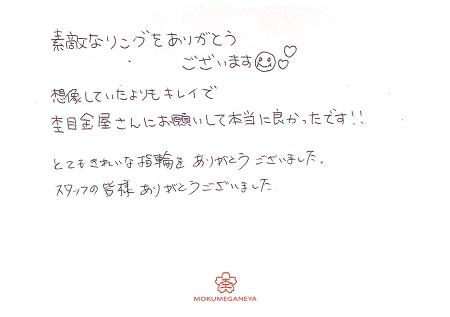 素敵なリングをありがとう
ございます
想像していたよりもキレイで
杢目金屋さんにお願いして本当に良かったです!!
とてもきれいな指輪を ありがとうございました。
スタッフの皆様 ありがとうございました
MOKUMEGANEYA